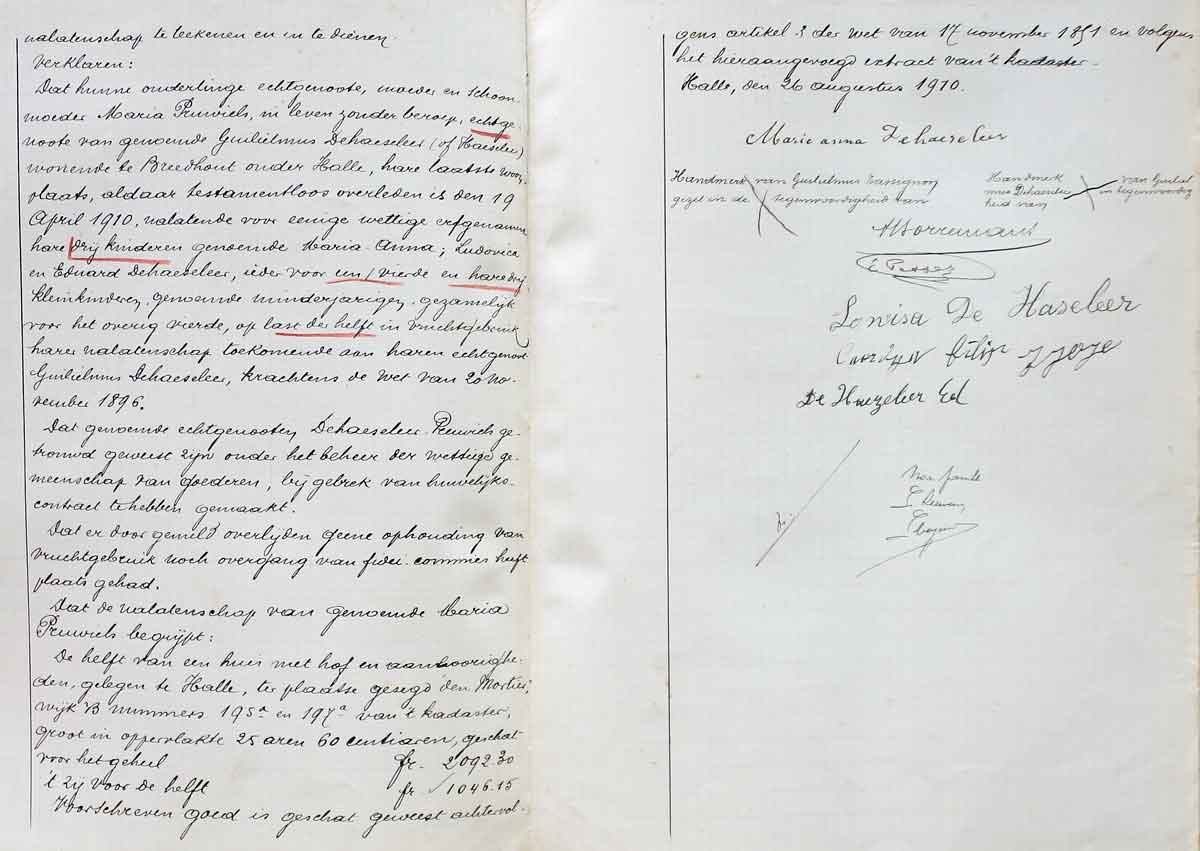 nalatenschap te teekenen en in te dienen.
Verklaren:
Dat hunne onderlinge echtgenoote, moeder en schoon-
moeder Maria Pruwiels, in leven zonder beroep, echtge-
noote van genoemde Guilielmus Dehaeseleer (of Haeseleer)
wonende te Breedhout onder Halle, hare laatste woon-
plaats, aldaar testamentloos overleden is den 19
April 1910, nalatende voor eenige wettige erfgenamen
hare drij kinderen genoemde Maria-Anna; Ludovica
en Eduard Dehaeseleer, ieder voor een/vierde en hare drij
kleinkinderen, genoemde minderjarigen gezamelijk
voor het overig vierde, op last der helft in vruchtgebruik
harer nalatenschap toekomende aan haren echtgenoot
Guilielmus Dehaeseleer, krachtens de wet van 20 no-
vember 1896.
Dat genoemde echtgenooten Dehaeseleer-Pruwiels ge-
trouwd geweest zijn onder het beheer der wettige ge-
meenschap van goederen, bij gebrek van huwelijks-
contract te hebben gemaakt.
Dat er door gemeld overlijden geene ophouding van
vruchtgebruik noch overgang van fidei-commies heeft
plaats gehad.
Dat de nalatenschap van genoemde Maria
Pruwiels begrijpt:
De helft van een huis met hof en aanhoorighe-
den, gelegen te Halle, ter plaatse gezegd den Mortier,
wijk B nummers 195a en 197a van 't kadaster,
groot in oppervlakte 25 aren 60 centiaren, geschat
voor het geheel fr. 2092.30
't zij voor De helft fr. 1046.15
Voorschreven goed is geschat geweest achtervol-
gens artikel 3 der wet van 17 november 1851 en volgens
het hieraangevoegd extract van 't kadaster.
Halle, den 26 augustus 1910.
Marie anna Dehaeseleer
Handmerk van Guilielmus Cassignon
gezel in de tegenwoordigheid van
Handmerk van Guiliel
mus Dehaeseleer in tegenwoordig
heid van
Louisa De Haseleer
filip
De Haezeleer Ed